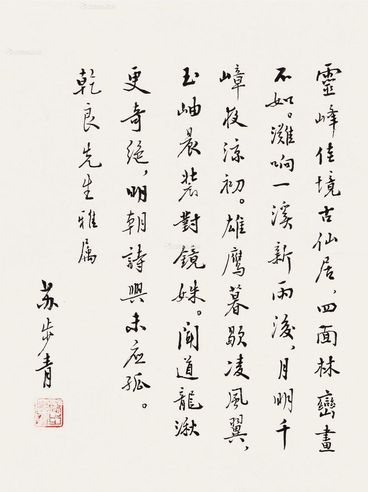 靈峰佳境古仙居，四面林巒畫
不如。灘响一溪新雨後，月明千
嶂夜涼初。雄鹰暮歇凌風翼，
玉岫晨裝對鏡姝。聞道龍湫
更奇絕，明朝詩興未应孤。
乾良先生雅属
苏步青